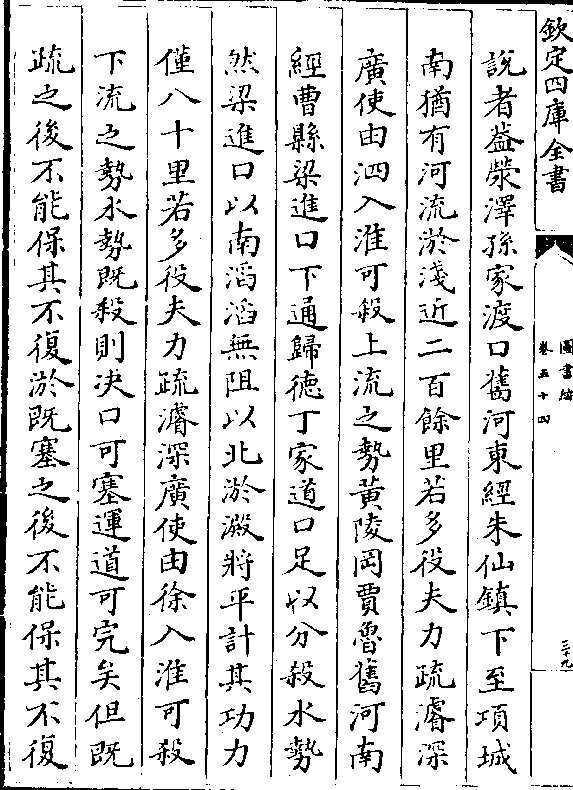 欽定四庫全書
圖書編
卷五十四
三十九
說者益滎澤孫家渡口舊河東經朱仙鎮下至項城
南猶有河流淤淺近二百餘里若多役夫力疏濬深
廣使由泗入淮可殺上流之勢黄陵岡賈魯舊河南
經曹縣梁進口下通歸德丁家道口足以分殺水勢
然梁進口以南滔滔無阻以北淤澱將平計其功力
僅八十里若多役夫力疏濬深廣使由徐入淮可殺
下流之勢水勢既殺則决口可塞運道可完矣但既
疏之後不能保其不復淤既塞之後不能保其不復